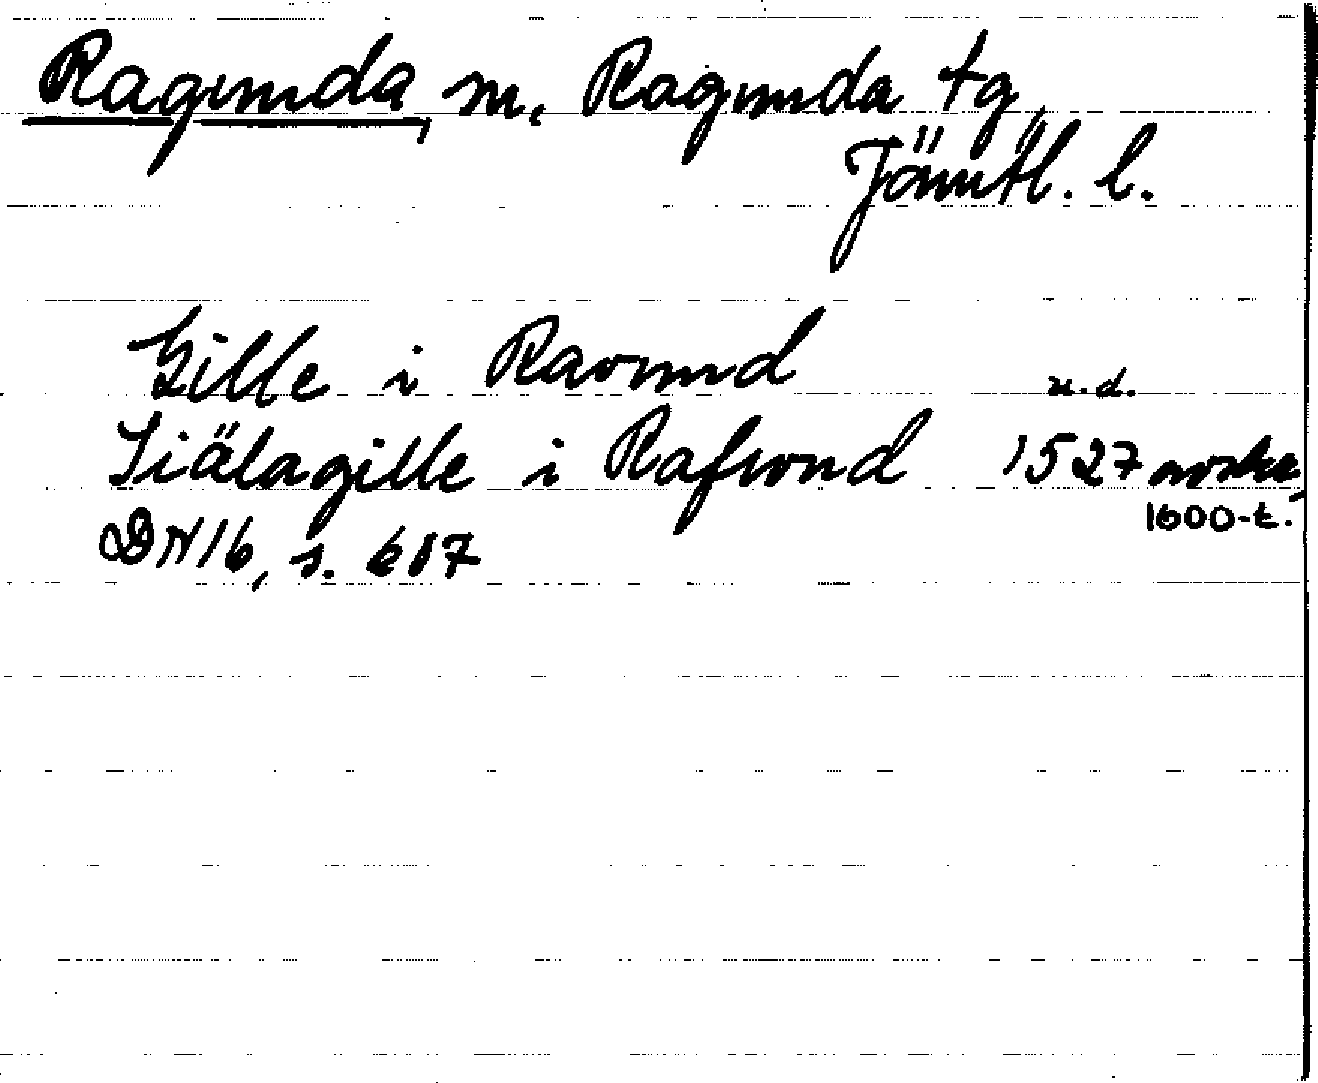 Ragunda, sn, Ragunda tg,
Jämtl. l.
Gille i Ravund u.d.
Siälagille i Rafwnd 1527 avskr,
1600-t.
DN 16, s. 687